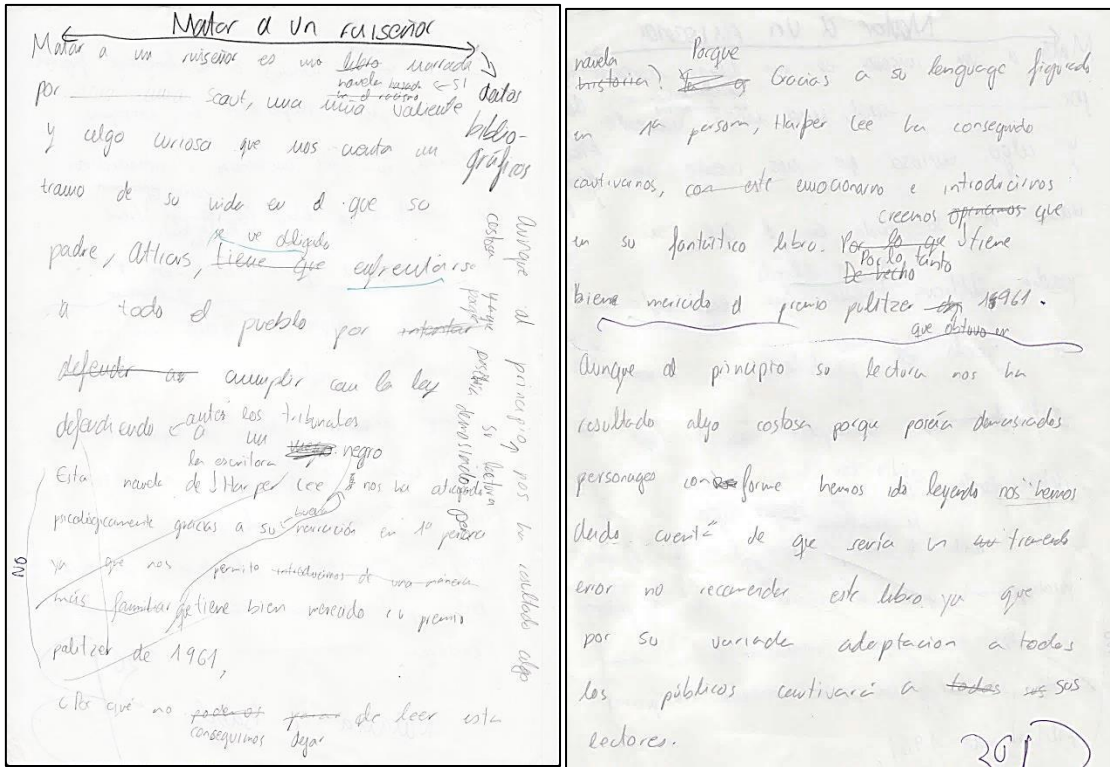 Matar a un ruiseñor
Matar a un ruiseñor es una libro narrada
novela basada ← SI
en el racismo
por Scout, una niña valiente
datos
biblio-
gráficos
y algo curiosa que nos cuenta un
tramo de su vida en el que su
se ve obligado
padre, Atticus, tiene que enfrentarse
a todo el pueblo por intentar
defender a cumplir con la ley
defendiendo ante los tribunales
a un negro
la escritora
Esta novela de Harper Lee nos ha atrapado
psicológicamente gracias a su narración en 1º persona
ya que nos permite introducirnos de una manera
más familiar tiene bien merecido su premio
pulitzer de 1961,
NO
¿Por qué no podemos parar de leer esta
conseguimos dejar
Aunque al principio, nos ha resultado algo
costosa porque su lectura
poseía demasiados
novela Porque
historia? Gracias a su lenguage figurado
en 1ª persona, Harper Lee ha conseguido
cautivarnos, con este emocionarno e introducirnos
creemos opinamos que
en su fantástico libro. Por lo que tiene
Por lo tanto
De hecho
biene mercido el premio pulitzer 1961.
que obtuvo en
Aunque al principio su lectura nos ha
resultado algo costosa porque poseía demasiados
personages conforme hemos ido leyendo nos hemos
dado cuenta de que sería un tremendo
error no recomender este libro ya que
por su variada adaptacion a todos
los públicos cautivará a todos sus sus
lectores.